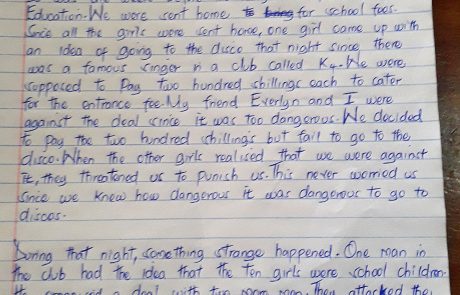 Education. We were sent home to being for school fees.
Since all the girls were sent home, one girl came up with
an idea of going to the disco that night since there
was a famous singer in a club called K4. We were
supposed to pay two hundred shillings each to cater
for the entrance fee. My friend Everlyn and I were
against the deal since it was too dangerous. We decided
to pay the two hundred shillings but fail to go to the
disco. When the other girls realised that we were against
it, they threatened us to punish us. This never worried us
since we knew how dangerous it was dangerous to go to
discos.
During that night, something strange happened. One man in
the club had the idea that the ten girls were school children.
a deal with two men. They attacked the